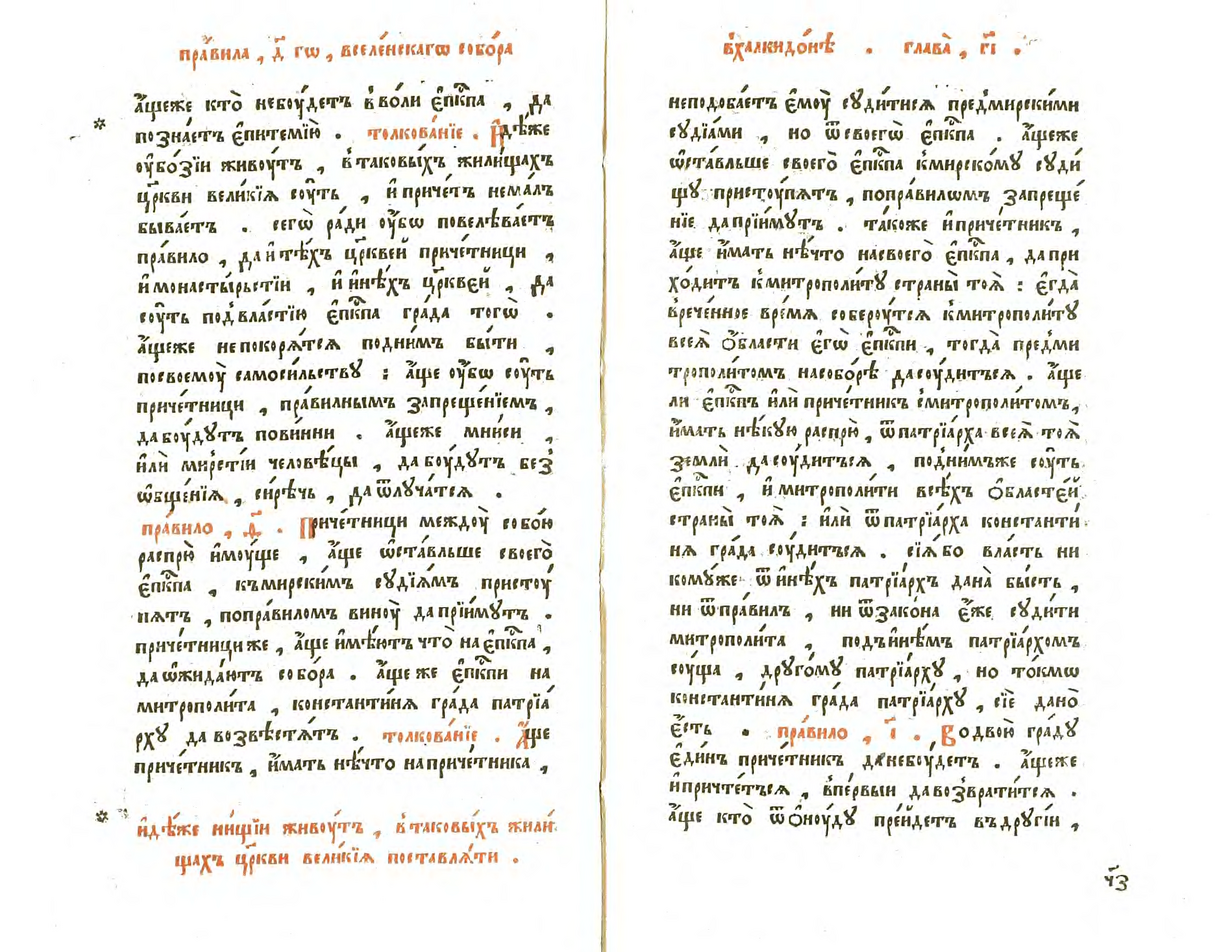 пра́вила , д҃ гѡ , вселе́нскагѡ собо́ра
а҆́щеже кто̀ небоу́детъ в во́ли є҆пⷭ҇кпа , да
позна́етъ є҆питемі́ю . толкова́нїе . И҆дѣ́же
оу҆бо́зїи живоу́тъ , в таковы́хъ жили́щахъ
цр҃кви вели́кїѧ соу́ть , и҆ при́четъ нема́лъ
быва́етъ . сегѡ̀ ра́ди оу҆́бѡ повелѣва́етъ
пра́вило , да и҆ тѣ́хъ цр҃кве́й приче́тницы ,
и҆ монасты́рьстїи , и҆ и҆нѣ́хъ цр҃кве́й , да
соу́ть под вла́стїю є҆пⷭ҇кпа гра́да тогѡ̀ .
а҆́щеже непокорѧ́тсѧ под ни́мъ бы́ти ,
посвоемоу̀ самоси́льствꙋ : а҆́ще оу҆́бѡ соу́ть
приче́тницы , пра́вилнымъ запреще́нїемъ ,
да боу́дꙋтъ пови́нни . а҆́щеже мни́си ,
и҆лѝ ми́рстїи человѣ́цы , да боу́дꙋтъ без
ѡ҆бще́нїѧ , си́рѣчь , да ѿлꙋча́тсѧ .
пра́вило , д҃ . Приче́тницы междоу̀ собо́ю
распрю̀ и҆моу́ще , а҆́ще ѡ҆ста́вльше своего̀
є҆пⷭ҇кпа , къ мирски́мъ сꙋдїѧ́мъ пристоу́
пѧтъ , поправи́ломъ виноу̀ да прїи́мꙋтъ .
приче́тницы же , а҆́ще и҆мѣ́ютъ что̀ на є҆пⷭ҇кпа ,
да ѡ҆жида́ютъ собо́ра . а҆́ще же є҆пⷭ҇кпи на
митрополи́та , константи́нѧ гра́да патрїа́
рхꙋ да возвѣстѧ́тъ . толкова́нїе . А҆́ще
приче́тникъ , и҆́мать нѣ́что на приче́тника ,
и҆дѣ́же ни́щїи живоу́тъ , в таковы́хъ жили́
щахъ цр҃кви вели́кїѧ поставлѧ́ти .
в халкидо́нѣ . глава̀ , г҃і .
неподоба́етъ є҆моу̀ сꙋди́тисѧ пред мирски́ми
сꙋдїа́ми , но ѿ своегѡ̀ є҆пⷭ҇кпа . а҆́щеже
ѡ҆ста́вльше своего̀ є҆пⷭ҇кпа к мирско́мꙋ сꙋди́
щꙋ пристоу́пѧтъ , поправи́лѡмъ запреще́
нїе да прїи́мꙋтъ . та́коже и҆ приче́тникъ ,
а҆́ще и҆́мать нѣ́что на своего̀ є҆пⷭ҇кпа , да при
хо́дитъ к митрополи́тꙋ страны̀ тоѧ̀ : є҆гда̀
в рече́нное вре́мѧ собероу́тсѧ к митрополи́тꙋ
всеѧ̀ о҆́бласти є҆гѡ̀ є҆пⷭ҇кпи , тогда̀ пред ми
трополи́томъ на собо́рѣ да соу́дитьсѧ . а҆́ще
ли є҆пⷭ҇кпъ и҆лѝ приче́тникъ с митрополи́томъ ,
и҆́мать нѣ́кꙋю распрю̀ , ѿ патрїа́рха всеѧ̀ тоѧ̀
землѝ да соу́дитьсѧ , под ни́мъже соу́ть
є҆пⷭ҇кпи , и҆ митрополи́ти всѣ́хъ о҆бласте́й
страны̀ тоѧ̀ : и҆лѝ ѿ патрїа́рха константи́
нѧ гра́да соу́дитьсѧ . сїѧ́ бо вла́сть ни
комꙋ́же ѿ и҆нѣ́хъ патрїа́рхъ дана̀ бы́сть ,
ни ѿ пра́вилъ , ни ѿ зако́на є҆́же сꙋди́ти
митрополи́та , подъ и҆нѣ́мъ патрїа́рхомъ
соу́ща , дрꙋго́мꙋ патрїа́рхꙋ , но то́кмѡ
константи́нѧ гра́да патрїа́рхꙋ , сїѐ дано̀
є҆́сть . пра́вило , і҃ . Во двою̀ гра́дꙋ
є҆ди́нъ приче́тникъ да не боу́детъ . а҆́щеже
и҆ причте́тьсѧ , в пе́рвыи да возврати́тсѧ .
а҆́ще кто̀ ѿ о҆ноу́дꙋ пре́йдетъ въ дрꙋгі́и ,
ч҃з